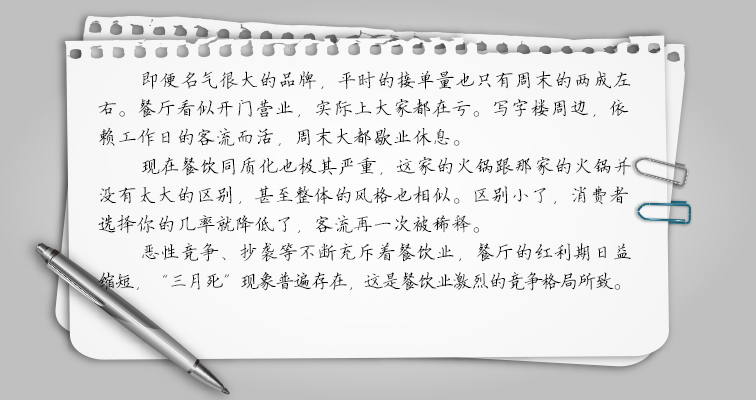 即便名气很大的品牌，平时的接单量也只有周末的两成左
右。餐厅看似开门营业，实际上大家都在亏。写字楼周边，依
赖工作日的客流而活，周末大都歇业休息。
现在餐饮同质化也极其严重，这家的火锅跟那家的火锅并
没有太大的区别，甚至整体的风格也相似。区别小了，消费者
选择你的几率就降低了，客流再一次被稀释。
恶性竞争、抄袭等不断充斥着餐饮业，餐厅的红利期日益
缩短，“三月死”现象普遍存在，这是餐饮业激烈的竞争格局所致。